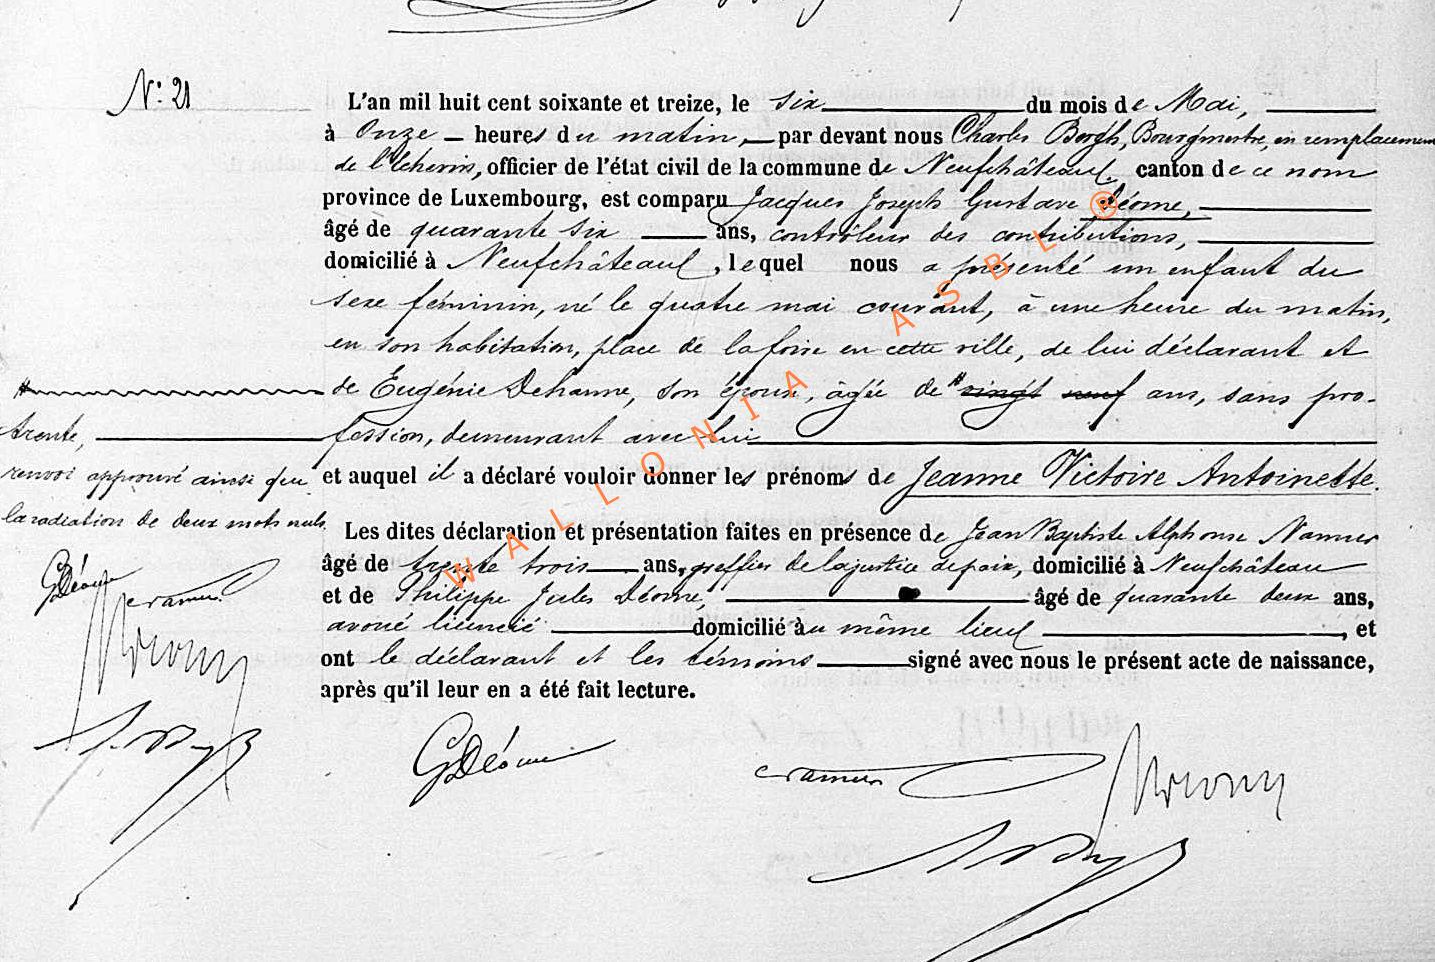 N° 21
L'an mil huit cent soixante et treize, le six du mois de Mai,
à Onze heures du matin, par devant nous Charles Bergh, Bourgmestre, en remplacement
de l'Echevin, officier de l'état civil de la commune de Neufchâteau, canton de ce nom
province de Luxembourg, est comparu Jacques Joseph Gustave Déome,
âgé de quarante six ans, contrôleur des contributions,
domicilié à Neufchâteau, lequel nous a présenté un enfant du
sexe féminin, né le quatre mai courant, à une heure du matin,
en son habitation, place de la foire en cette ville, de lui déclarant et
de Eugénie Dehanne, son épouse, âgée de # vingt neuf ans, sans pro-
fession, demeurant avec lui
et auquel il a déclaré vouloir donner les prénoms de Jeanne Victoire Antoinette.
Les dites déclaration et présentation faites en présence de Jean Baptiste Alphonse Namur
âgé de trente trois ans, greffier de la justice de paix, domicilié à Neufchâteau
et de Philippe Jules Déome, âgé de quarante deux ans,
avoué licencié domicilié au même lieu, et
ont le déclarant et les témoins signé avec nous le présent acte de naissance,
après qu'il leur en a été fait lecture.
#
trente,
renvoi approuvé ainsi que
la radiation de deux mots nuls.
GDéome
GDéome
WALLONIA ASBL ®